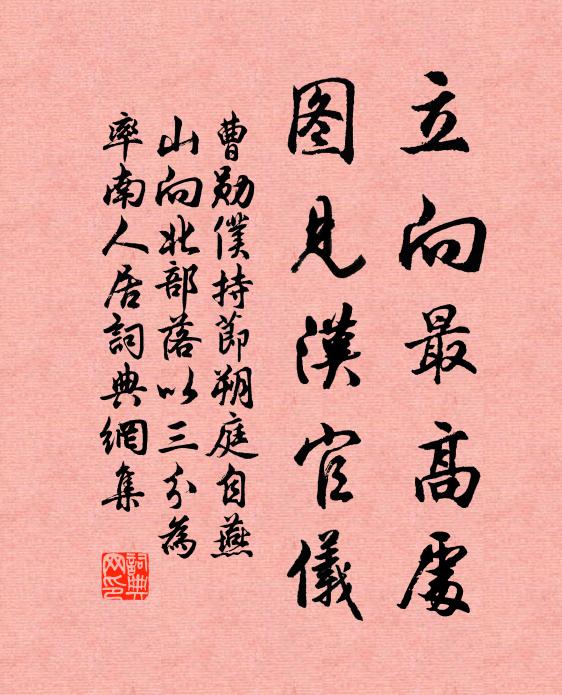 立向最高處
图見漢官儀
曹勛僕持節朔庭自燕
山向北部落以三分為
率南人居詞典網集
詞典
网印